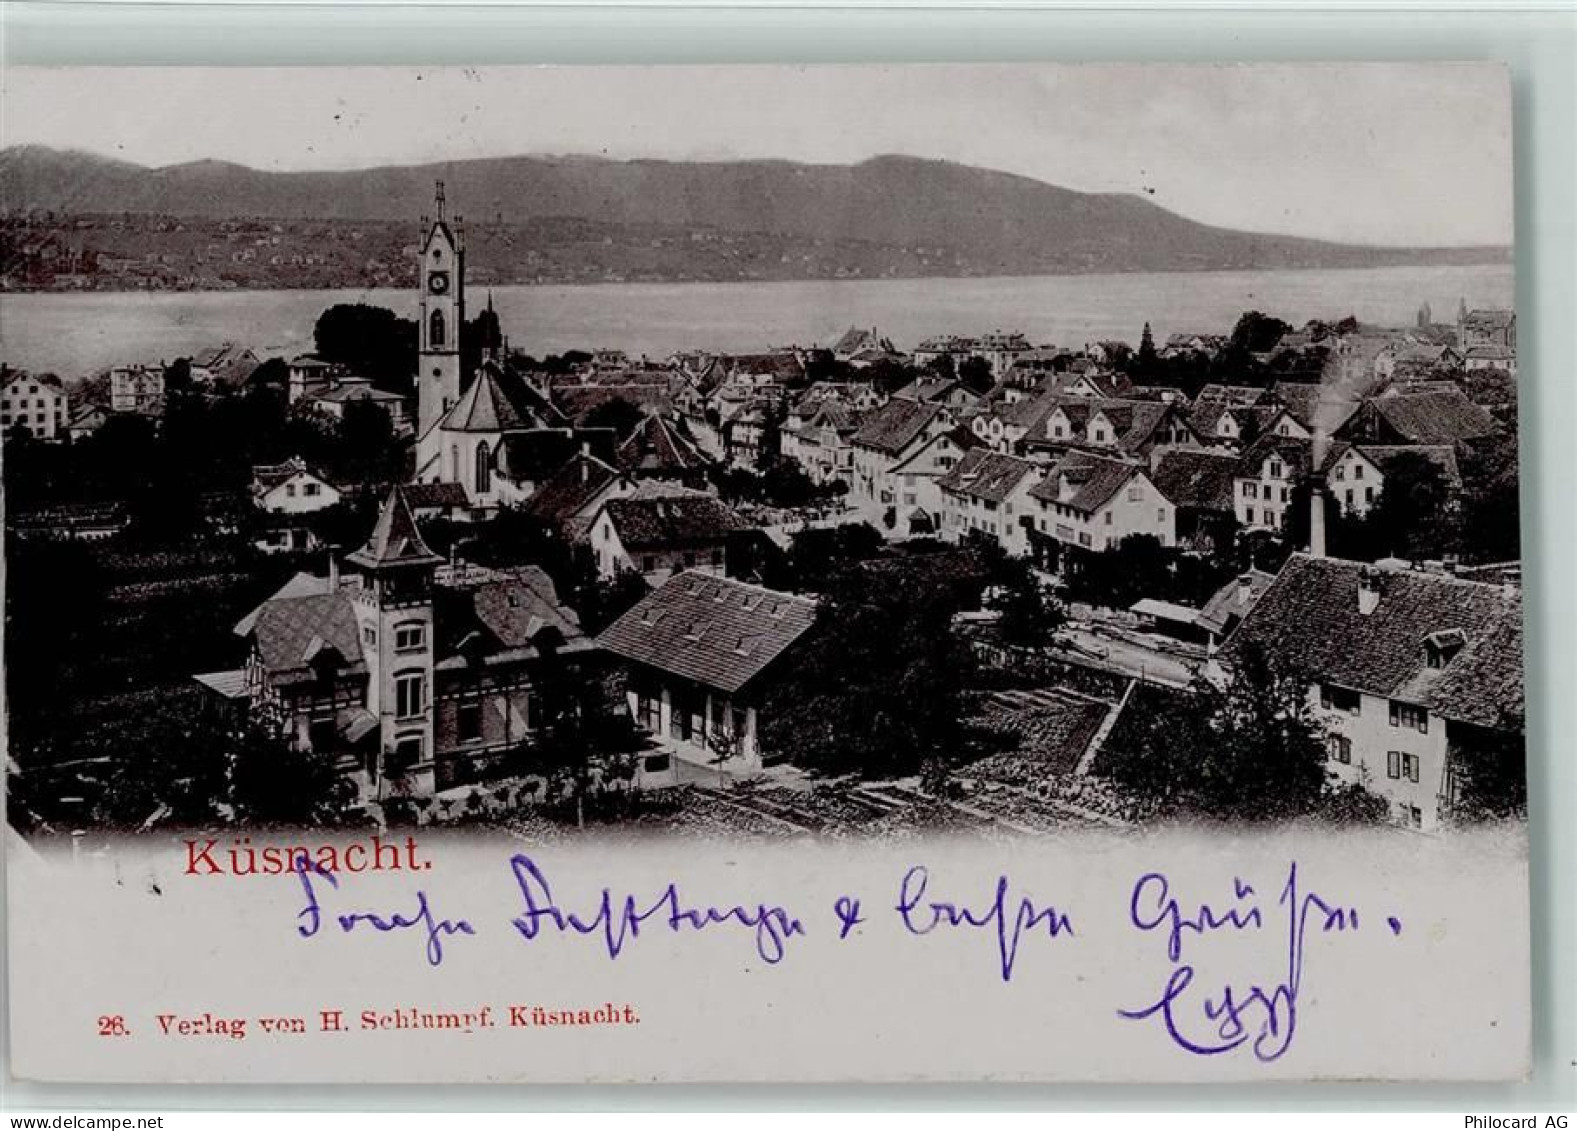 Küsnacht.
Frohe Festtage & beste Grüße.
26. Verlag von H. Schlumpf. Küsnacht.
delcampe.net
Philocard AG